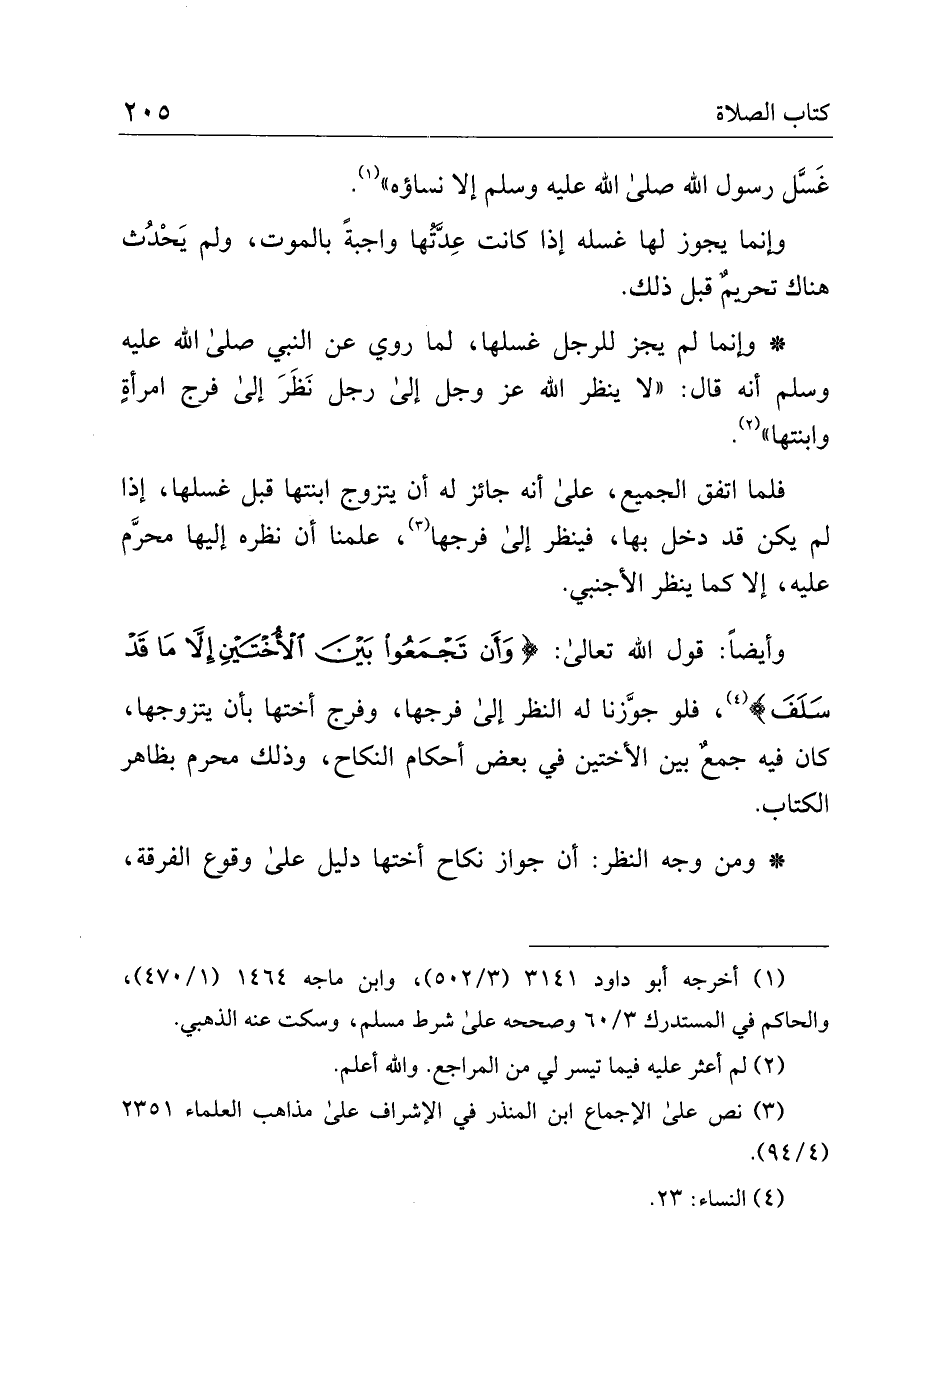 كتاب الصلاة ٢٠٥
غَسَّل رسول الله صلىٰ الله عليه وسلم إلا نساؤه»(١).
وإنما يجوز لها غسله إذا كانت عِدَّتُها واجبةً بالموت، ولم يَحْدُث
هناك تحريمٌ قبل ذلك.
* وإنما لم يجز للرجل غسلها، لما روي عن النبي صلىٰ الله عليه
وسلم أنه قال: «لا ينظر الله عز وجل إلىٰ رجل نَظَرَ إلىٰ فرج امرأةٍ
وابنتها»(٢).
فلما اتفق الجميع، علىٰ أنه جائز له أن يتزوج ابنتها قبل غسلها، إذا
لم يكن قد دخل بها، فينظر إلىٰ فرجها(٣)، علمنا أن نظره إليها محرَّم
عليه، إلا كما ينظر الأجنبي.
وأيضاً: قول الله تعالىٰ: ﴿وَأَن تَجْمَعُوا۟ بَيْنَ ٱلْأُخْتَيْنِ إِلَّا مَا قَدْ
سَلَفَ﴾(٤)، فلو جوَّزنا له النظر إلىٰ فرجها، وفرج أختها بأن يتزوجها،
كان فيه جمعٌ بين الأختين في بعض أحكام النكاح، وذلك محرم بظاهر
الكتاب.
* ومن وجه النظر: أن جواز نكاح أختها دليل علىٰ وقوع الفرقة،
(١) أخرجه أبو داود ٣١٤١ (٥٠٢/٣)، وابن ماجه ١٤٦٤ (٤٧٠/١)،
والحاكم في المستدرك ٦٠/٣ وصححه علىٰ شرط مسلم، وسكت عنه الذهبي.
(٢) لم أعثر عليه فيما تيسر لي من المراجع. والله أعلم.
(٣) نص علىٰ الإجماع ابن المنذر في الإشراف علىٰ مذاهب العلماء ٢٣٥١
(٩٤/٤).
(٤) النساء: ٢٣.